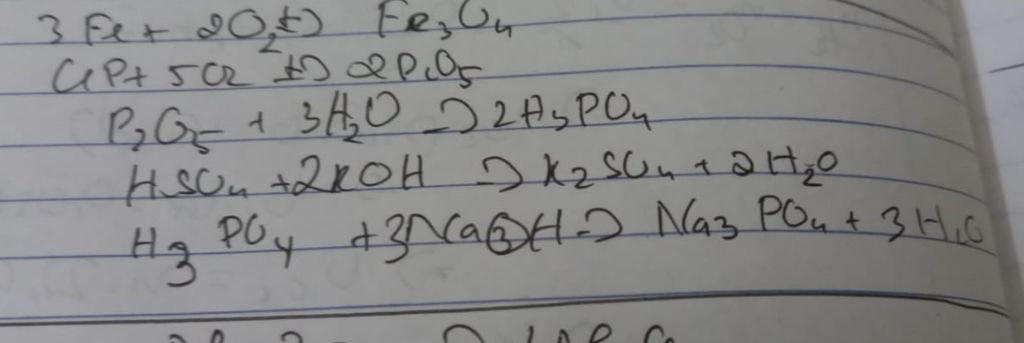 3Fe + 2O2 t→ Fe3O4
4P + 5O2 t→ 2P2O5
P2O5 + 3H2O → 2H3PO4
HSO4 + 2KOH → K2SO4 + 2H2O
H3PO4 + 3NaOH → Na3PO4 + 3H2O